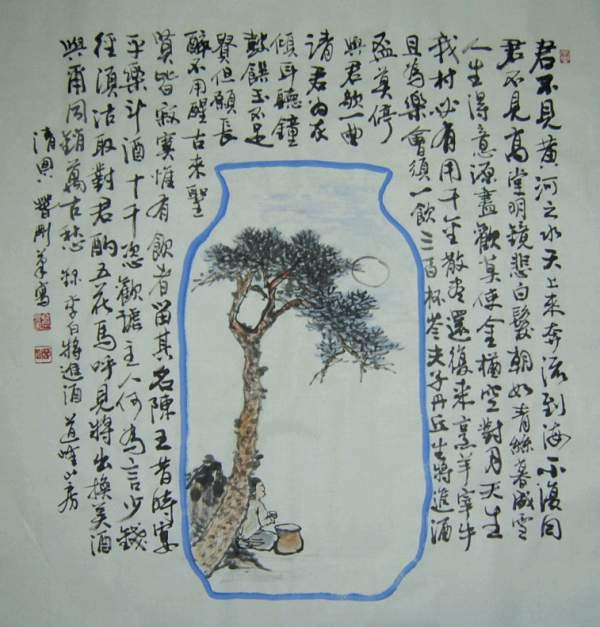 君不見黃河之水天上來奔流到海不復回
君不見高堂明鏡悲白髮朝如青絲暮成雪
人生得意須盡歡莫使金樽空對月天生
我材必有用千金散盡還復來烹羊宰牛
且為樂會須一飲三百杯岑夫子丹丘生將進酒
盃莫停
與君歌一曲
請君為我
傾耳聽鐘
鼓饌玉不足
貴但願長
醉不用醒古來聖
賢皆寂寞惟有飲者留其名陳王昔時宴
平樂斗酒十千恣歡謔主人何為言少錢
徑須沽取對君酌五花馬呼兒將出換美酒
與爾同銷萬古愁 錄李白將進酒 山房